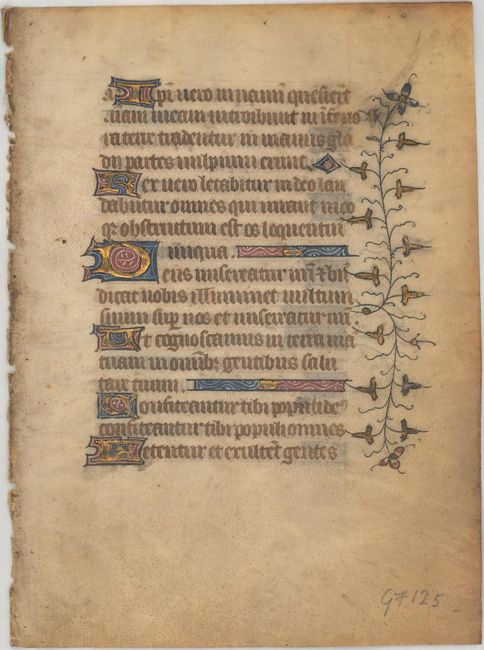 Ipi vero in vanu quesierut
aiam meam introibunt in iferio
ra terre tradentur in manus gla
dii partes vulpium erunt.
Rex vero letabitur in deo lau
dabuntur omnes qui iurant in eo
qr obstructum est os loquentiu
iniqua.
Deus misereatur nri et bn
dicat nobis illuminet vultum
suum sup nos et misereatur nri
Ut cognoscamus in terra via
tuam in omnib gentibus salu
tare tuum.
Confiteantur tibi populi de9
confiteantur tibi populi omnes
Letentur et exultet gentes
G7 125